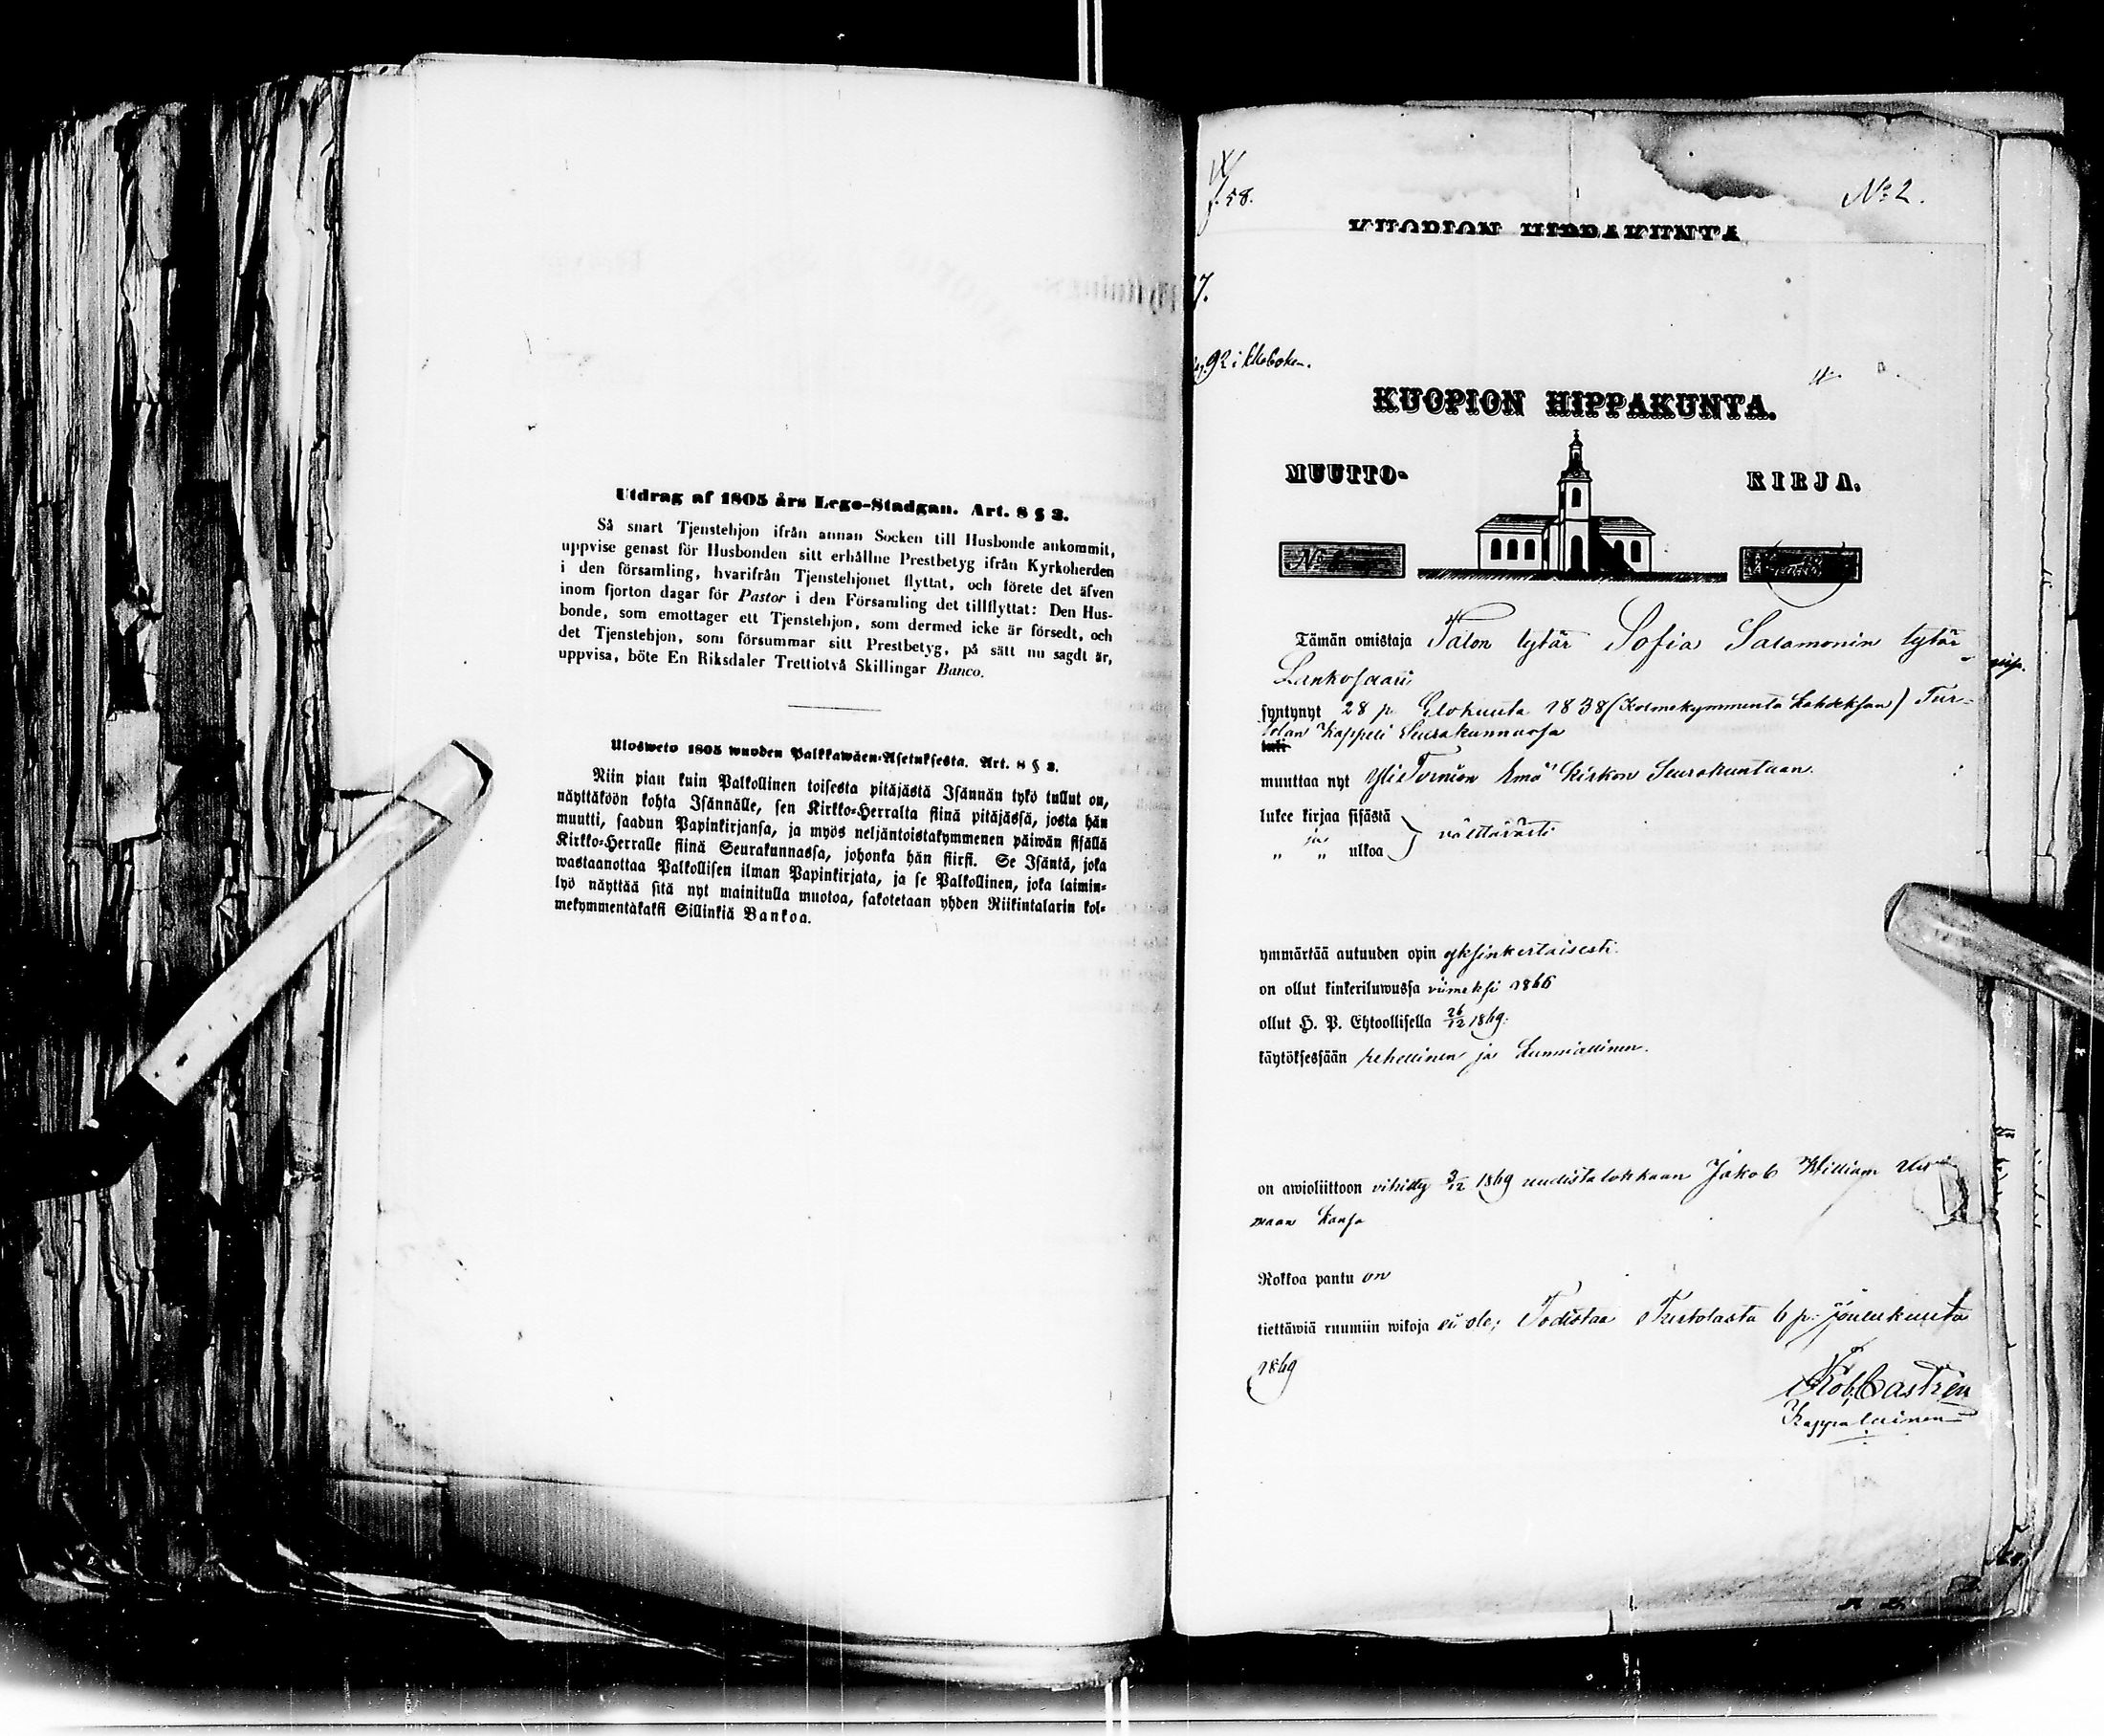 Utdrag af 1805 års Lego-Stadgan. Art. 8 § 3.
Så snart Tjenstehjon ifrån annan Socken till Husbonde ankommit,
uppvise genast för Husbonden sitt erhållne Prestbetyg ifrån Kyrkoherden
i den församling, hvarifrån Tjenstehjonet flyttat, och förete det äfven
inom fjorton dagar för Pastor i den Församling det tillflyttat: Den Hus-
bonde, som emottager ett Tjenstehjon, som dermed icke är försedt, och
det Tjenstehjon, som försummar sitt Prestbetyg, på sätt nu sagdt är,
uppvisa, böte En Riksdaler Trettiotvå Skillingar Banco.
Ulosweto 1805 wuoden Palkkawäen-Asetuksesta. Art. 8 § 3.
Niin pian kuin Palkollinen toisesta pitäjästä Isännän tykö tullut on,
näyttäköön kohta Isännälle, sen Kirkko-Herralta siinä pitäjässä, josta hän
muutti, saadun Papinkirjansa, ja myös neljäntoistakymmenen päiwän sisällä
Kirkko-Herralle siinä Seurakunnassa, johonka hän siirsi. Se Isäntä, joka
wastaanottaa Palkollisen ilman Papinkirjata, ja se Palkollinen, joka laimin-
lyö näyttää sitä nyt mainitulla muotoa, sakotetaan yhden Riikintalarin kol-
mekymmentäkaksi Sillinkiä Bankoa.
f. 58.
No 2.
KUOPION HIPPAKUNTA
7.
92 i
KUOPION HIPPAKUNTA.
MUUTTO-
KIRJA.
Tämän omistaja Talon tytär Sofia Salamonin tytär
Lankosaari
syntynyt 28 p Elokuuta 1838 (Kolmekymmentä kahdeksan) Tur-
tolan Kappeli Seurakunnassa
muuttaa nyt YliTornion Emä Kirkon Seurakuntaan.
lukee kirjaa sisästä
ja välttävästi
" " ulkoa
ymmärtää autuuden opin yksinkertaisesti.
on ollut kinkeriluwussa viimeksi 1866
ollut H. P. Ehtoollisella 26/12 1869.
käytöksessään rehellinen ja kunniallinen.
on awioliittoon vihitty 3/12 1869 uudistalokkaan Jakob William
maan kansa
Rokkoa pantu on
tiettäwiä ruumiin wikoja ei ole; Todistaa Turtolasta 6 p. joulukuuta
1869
Rob. Castrén
Kappalainen